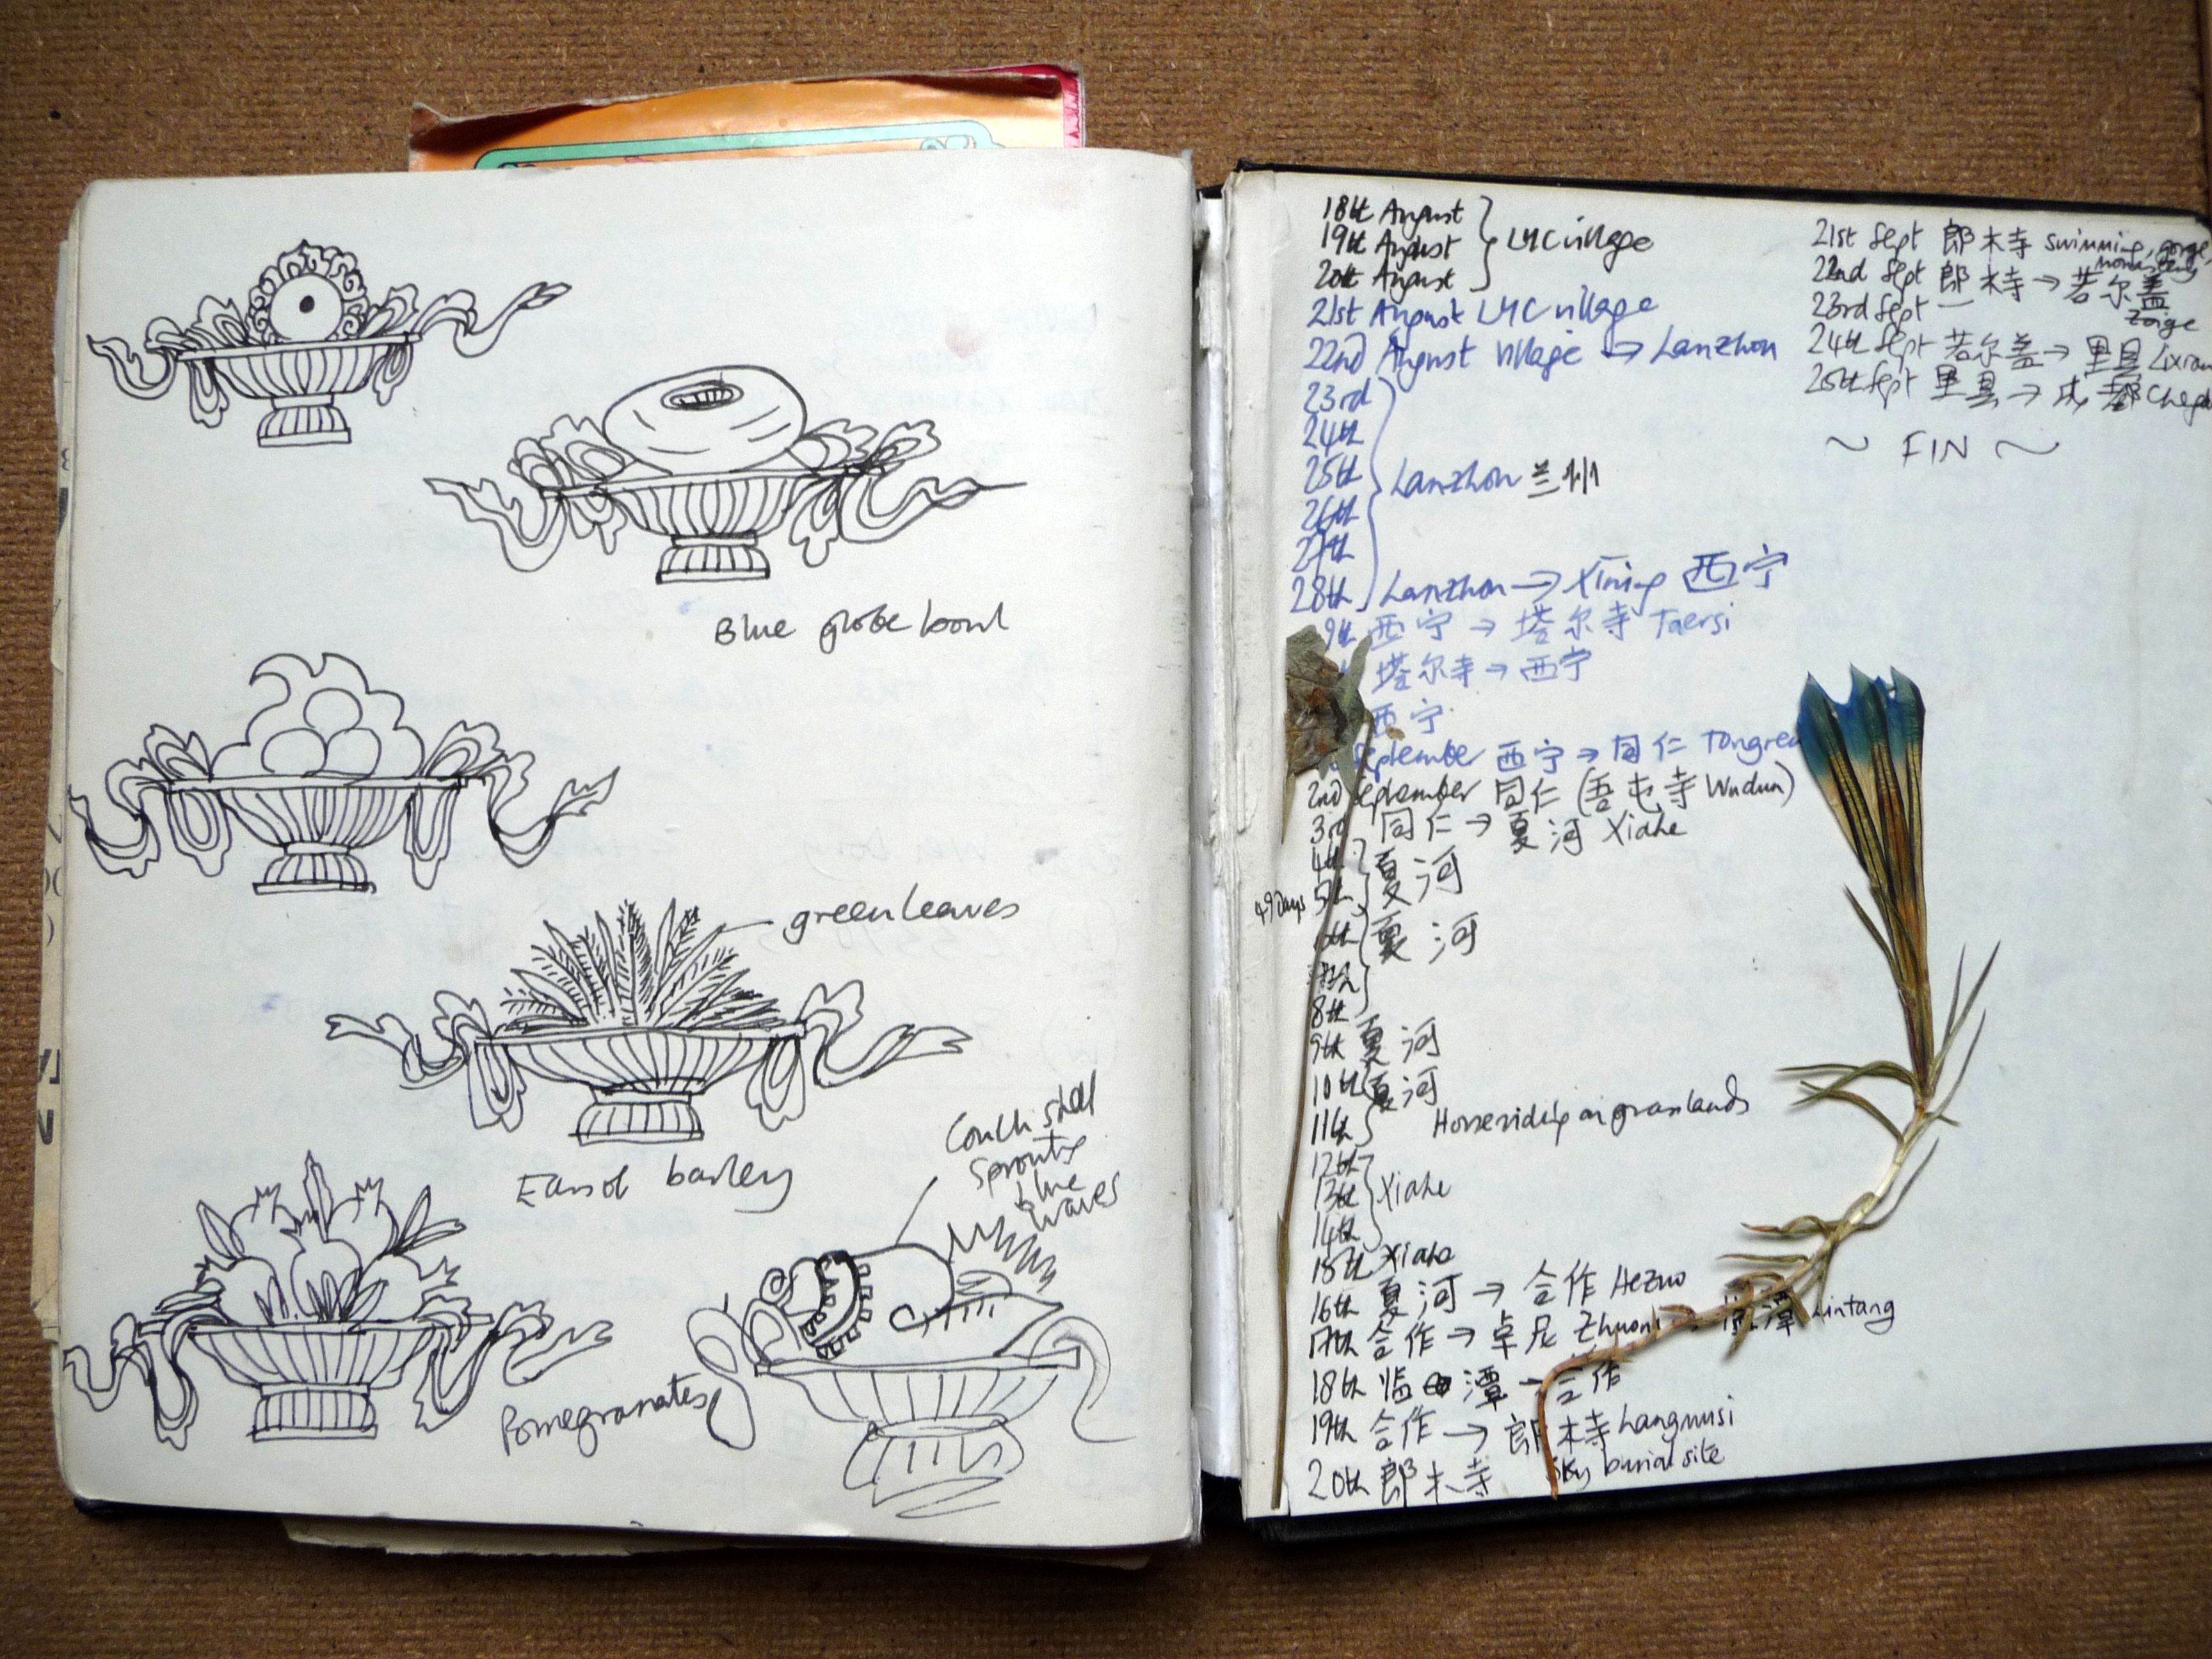 Blue globe bowl
green leaves
Ears of barley
Conch shell
sprouting
blue
waves
Pomegranates
18th August
19th August
20th August
LYC village
21st August LYC village
22nd August village → Lanzhou
23rd
24th
25th
26th
27th
Lanzhou 兰州
28th Lanzhou → Xining 西宁
9th 西宁 → 塔尔寺 Taersi
塔尔寺 → 西宁
西宁
September 西宁 → 同仁 Tongren
2nd September 同仁 (吾屯寺 Wudun)
3rd 同仁 → 夏河 Xiahe
4th
5th
夏河
49 Days
6th 夏河
7th
8th
9th 夏河
10th 夏河
11th Horseriding on grasslands
12th
13th
14th
Xiahe
15th Xiahe
16th 夏河 → 合作 Hezuo
17th 合作 → 卓尼 Zhuoni 临潭 Lintang
18th 临潭 → 合作
19th 合作 → 郎木寺 Langmusi
Sky burial site
20th 郎木寺
21st Sept 郎木寺 swimming, gorge,
monastery
22nd Sept 郎木寺 → 若尔盖
Zoige
23rd Sept —
24th Sept 若尔盖 → 里县 Lixian
25th Sept 里县 → 成都 Chegd
~ FIN ~